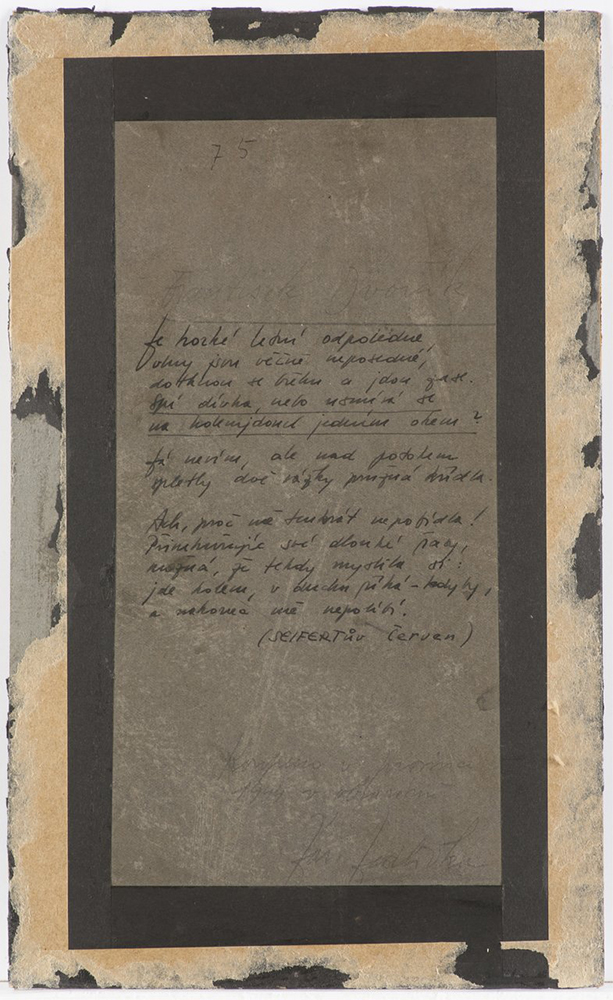 75
František Dvořák
Je horké letní odpoledne
vlny jsou věčně neposedné,
dotknou se břehu a jdou zase.
Spí dívka, nebo usmívá se
na kolemjdoucí jedním okem?
Já nevím, ale nad potokem
spletly dvě vážky pružná křídla.
Ach, proč mě tenkrát nepobídla!
Přimhuřujíc své dlouhé řasy,
možná, že tehdy myslila si:
jde kolem, v duchu říká - kdyby,
a nakonec mě nepolíbí.
(SEIFERTův Červen)
v
Jiří